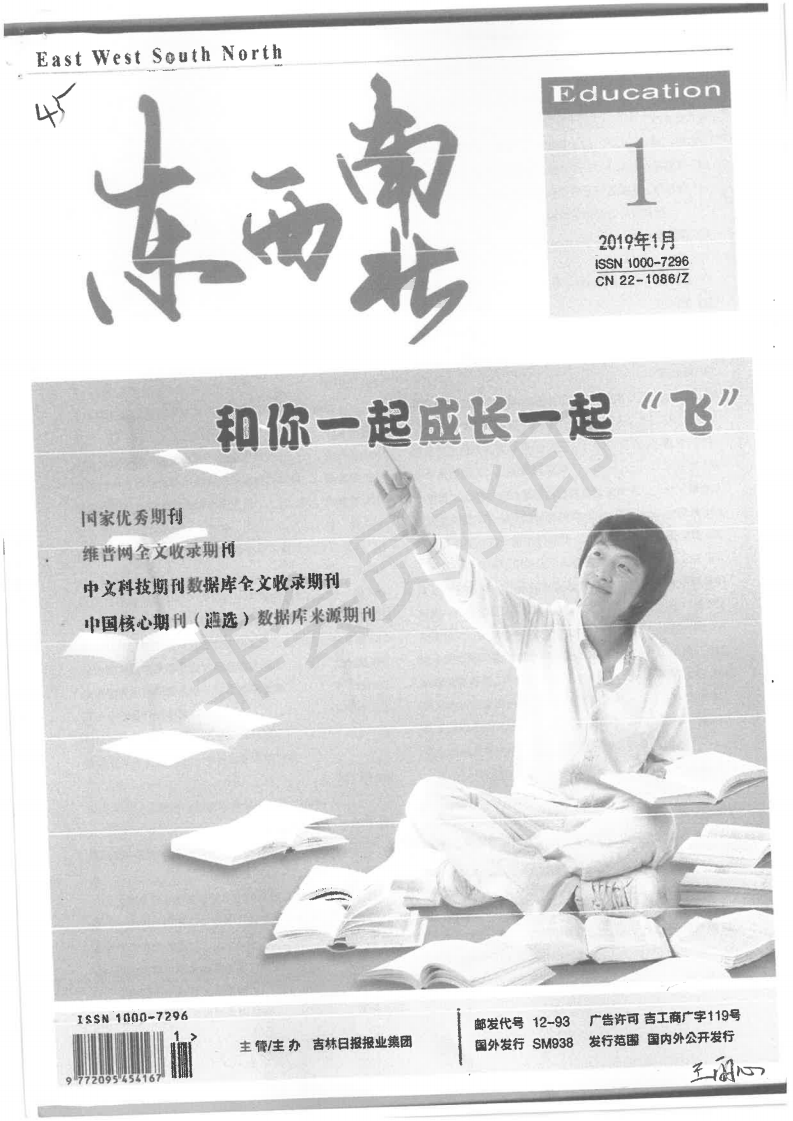 East West South North
45
东西南北
Education
1
2019年1月
ISSN 1000-7296
CN 22-1086/Z
和你一起成长一起“飞”
国家优秀期刊
维普网全文收录期刊
中文科技期刊数据库全文收录期刊
中国核心期刊(遴选)数据库来源期刊
非会员水印
ISSN 1000-7296
1 >
9 772095 454167
主管/主办 吉林日报报业集团
邮发代号 12-93 广告许可 吉工商广字119号
国外发行 SM938 发行范围 国内外公开发行